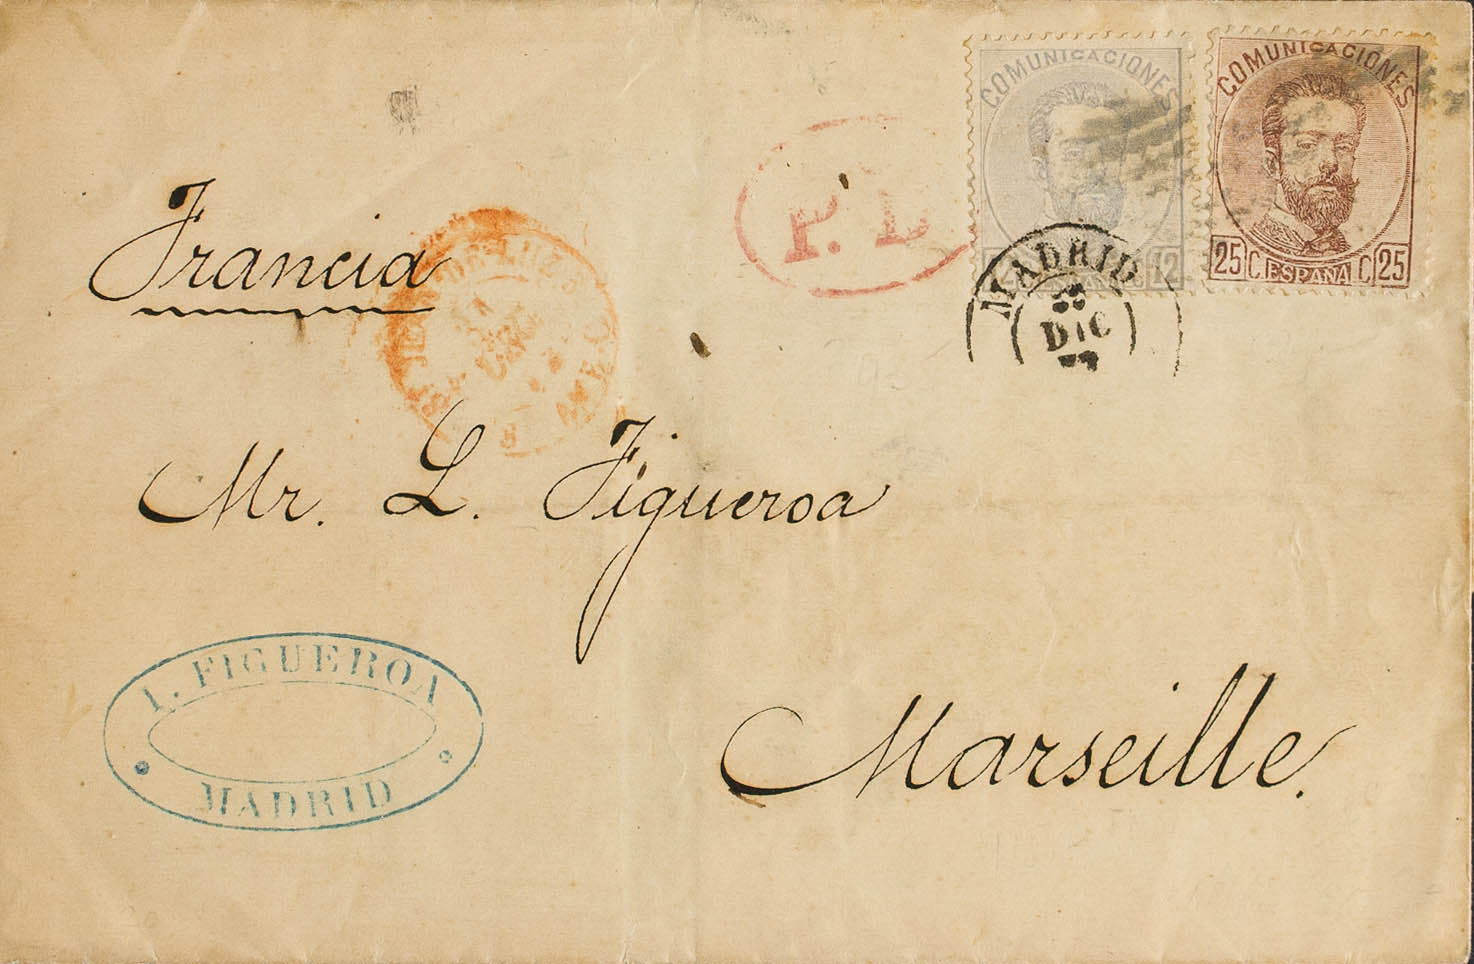 COMUNICACIONES
12
COMUNICACIONES
25 C. ESPAÑA C. 25
P. D
MADRID
DIC
Francia
Mr. L. Figueroa
Marseille.
I. FIGUEROA
MADRID